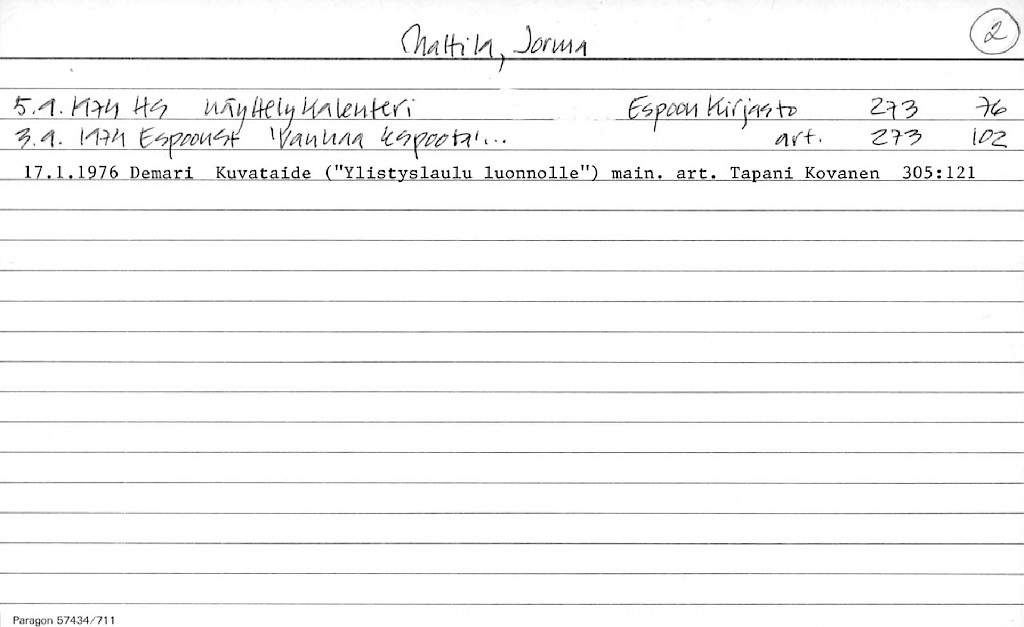 Mattila, Jorma 2
5.9. 1974 HS Näyttelykalenteri Espoon Kirjasto 273 76
3.9. 1974 Espoonst "Vanhaa Espoota"... art. 273 102
17.1.1976 Demari Kuvataide ("Ylistyslaulu luonnolle") main. art. Tapani Kovanen 305:121
Paragon 57434/711